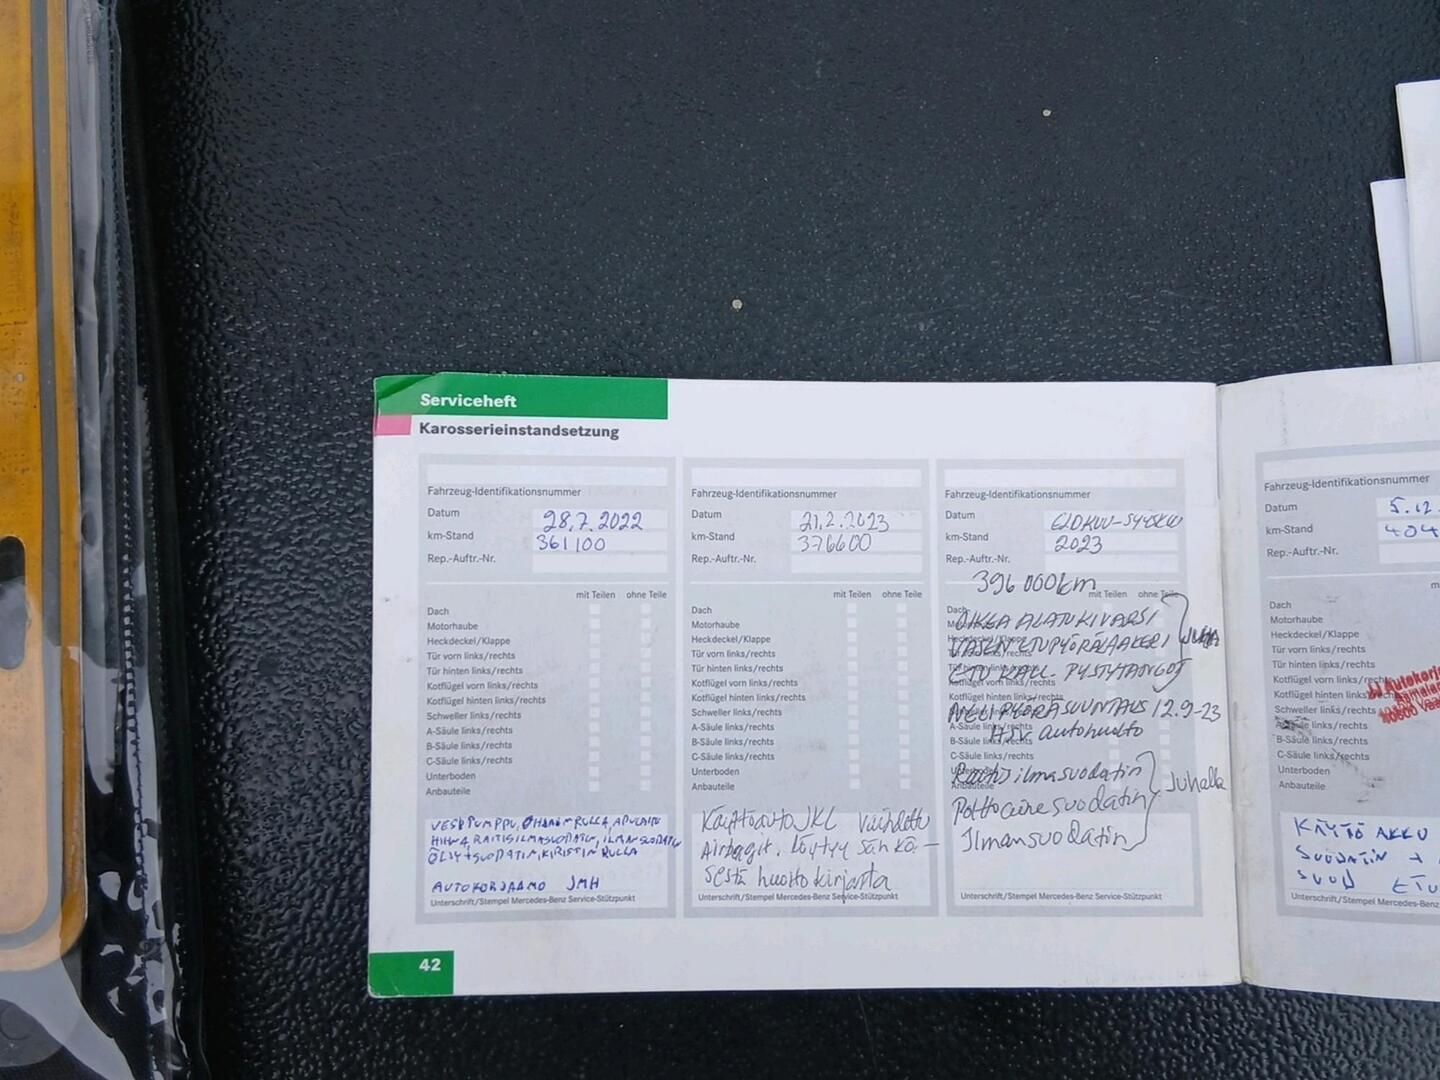 Serviceheft
Karosserieinstandsetzung
Fahrzeug-Identifikationsnummer
Datum 28.7.2022
km-Stand 361100
Rep.-Auftr.-Nr.
mit Teilen ohne Teile
Dach
Motorhaube
Heckdeckel/Klappe
Tür vorn links/rechts
Tür hinten links/rechts
Kotflügel vorn links/rechts
Kotflügel hinten links/rechts
Schweller links/rechts
A-Säule links/rechts
B-Säule links/rechts
C-Säule links/rechts
Unterboden
Anbauteile
VESIPUMPPU, OHJAINRULLA, APULAITE
HIHNA, RAITISILMASUODATIN, ILMANSUODATIN
ÖLJY+SUODATIN, KIRISTIN RULLA
AUTOKORJAAMO JMH
Unterschrift/Stempel Mercedes-Benz Service-Stützpunkt
Fahrzeug-Identifikationsnummer
Datum 21.2.2023
km-Stand 376600
Rep.-Auftr.-Nr.
mit Teilen ohne Teile
Dach
Motorhaube
Heckdeckel/Klappe
Tür vorn links/rechts
Tür hinten links/rechts
Kotflügel vorn links/rechts
Kotflügel hinten links/rechts
Schweller links/rechts
A-Säule links/rechts
B-Säule links/rechts
C-Säule links/rechts
Unterboden
Anbauteile
Käyttöauto JKL vaihdettu
Airbagit. löytyy sähkö-
sestä huoltokirjasta
Unterschrift/Stempel Mercedes-Benz Service-Stützpunkt
Fahrzeug-Identifikationsnummer
Datum ELOKUU-SYYSKUU
km-Stand 2023
Rep.-Auftr.-Nr.
396 000km
mit Teilen ohne Teile
Dach
OIKEA ALATUKIVARSI
Heckdeckel/Klappe
VASEN ETUPYÖRÄLAAKERI JUHA
Tür hinten links/rechts
ETU KALL. PYSTYTANGOT
Kotflügel vorn links/rechts
Kotflügel hinten links/rechts
NELIPYÖRÄSUUNTAUS 12.9-23
A-Säule links/rechts
HSV autohuolto
B-Säule links/rechts
C-Säule links/rechts
Raitisilmasuodatin
Unterboden
Juhalla
Anbauteile
Polttoainesuodatin
Ilmansuodatin
Unterschrift/Stempel Mercedes-Benz Service-Stützpunkt
42
Fahrzeug-Identifikationsnummer
Datum 5.12.
km-Stand 404
Rep.-Auftr.-Nr.
Dach
Motorhaube
Heckdeckel/Klappe
Tür vorn links/rechts
Tür hinten links/rechts
Kotflügel vorn links/rechts
Kotflügel hinten links/rechts
Schweller links/rechts
A-Säule links/rechts
B-Säule links/rechts
C-Säule links/rechts
Unterboden
Anbauteile
KÄYTÖ AKKU
SUODATIN +
SUOD ETU
Unterschrift/Stempel Mercedes-Benz